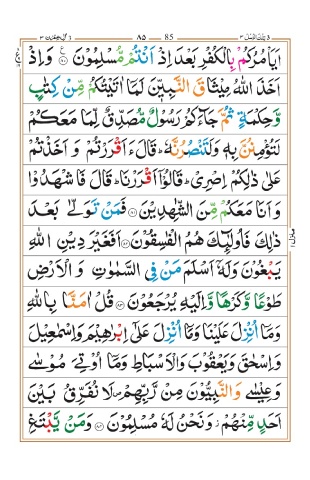 اَيَاْمُرُكُمْ بِالْكُفْرِ بَعْدَ اِذْ اَنْتُمْ مُّسْلِمُوْنَ ۝ وَاِذْ
اَخَذَ اللّٰهُ مِيْثَاقَ النَّبِيّٖنَ لَمَاۤ اٰتَيْتُكُمْ مِّنْ كِتٰبٍ
وَّحِكْمَةٍ ثُمَّ جَآءَكُمْ رَسُوْلٌ مُّصَدِّقٌ لِّمَا مَعَكُمْ
لَتُؤْمِنُنَّ بِهٖ وَلَتَنْصُرُنَّهٗ ؕ قَالَ ءَاَقْرَرْتُمْ وَاَخَذْتُمْ
عَلٰى ذٰلِكُمْ اِصْرِىْ ؕ قَالُوْۤا اَقْرَرْنَا ؕ قَالَ فَاشْهَدُوْا
وَاَنَا مَعَكُمْ مِّنَ الشّٰهِدِيْنَ ۝ فَمَنْ تَوَلّٰى بَعْدَ
ذٰلِكَ فَاُولٰٓئِكَ هُمُ الْفٰسِقُوْنَ ۝ اَفَغَيْرَ دِيْنِ اللّٰهِ
يَبْغُوْنَ وَلَهٗۤ اَسْلَمَ مَنْ فِى السَّمٰوٰتِ وَالْاَرْضِ
طَوْعًا وَّكَرْهًا وَّاِلَيْهِ يُرْجَعُوْنَ ۝ قُلْ اٰمَنَّا بِاللّٰهِ
وَمَاۤ اُنْزِلَ عَلَيْنَا وَمَاۤ اُنْزِلَ عَلٰٓى اِبْرٰهِيْمَ وَاِسْمٰعِيْلَ
وَاِسْحٰقَ وَيَعْقُوْبَ وَالْاَسْبَاطِ وَمَاۤ اُوْتِىَ مُوْسٰى
وَعِيْسٰى وَالنَّبِيُّوْنَ مِنْ رَّبِّهِمْ ۪ لَا نُفَرِّقُ بَيْنَ
اَحَدٍ مِّنْهُمْ ؗ وَنَحْنُ لَهٗ مُسْلِمُوْنَ ۝ وَمَنْ يَّبْتَغِ